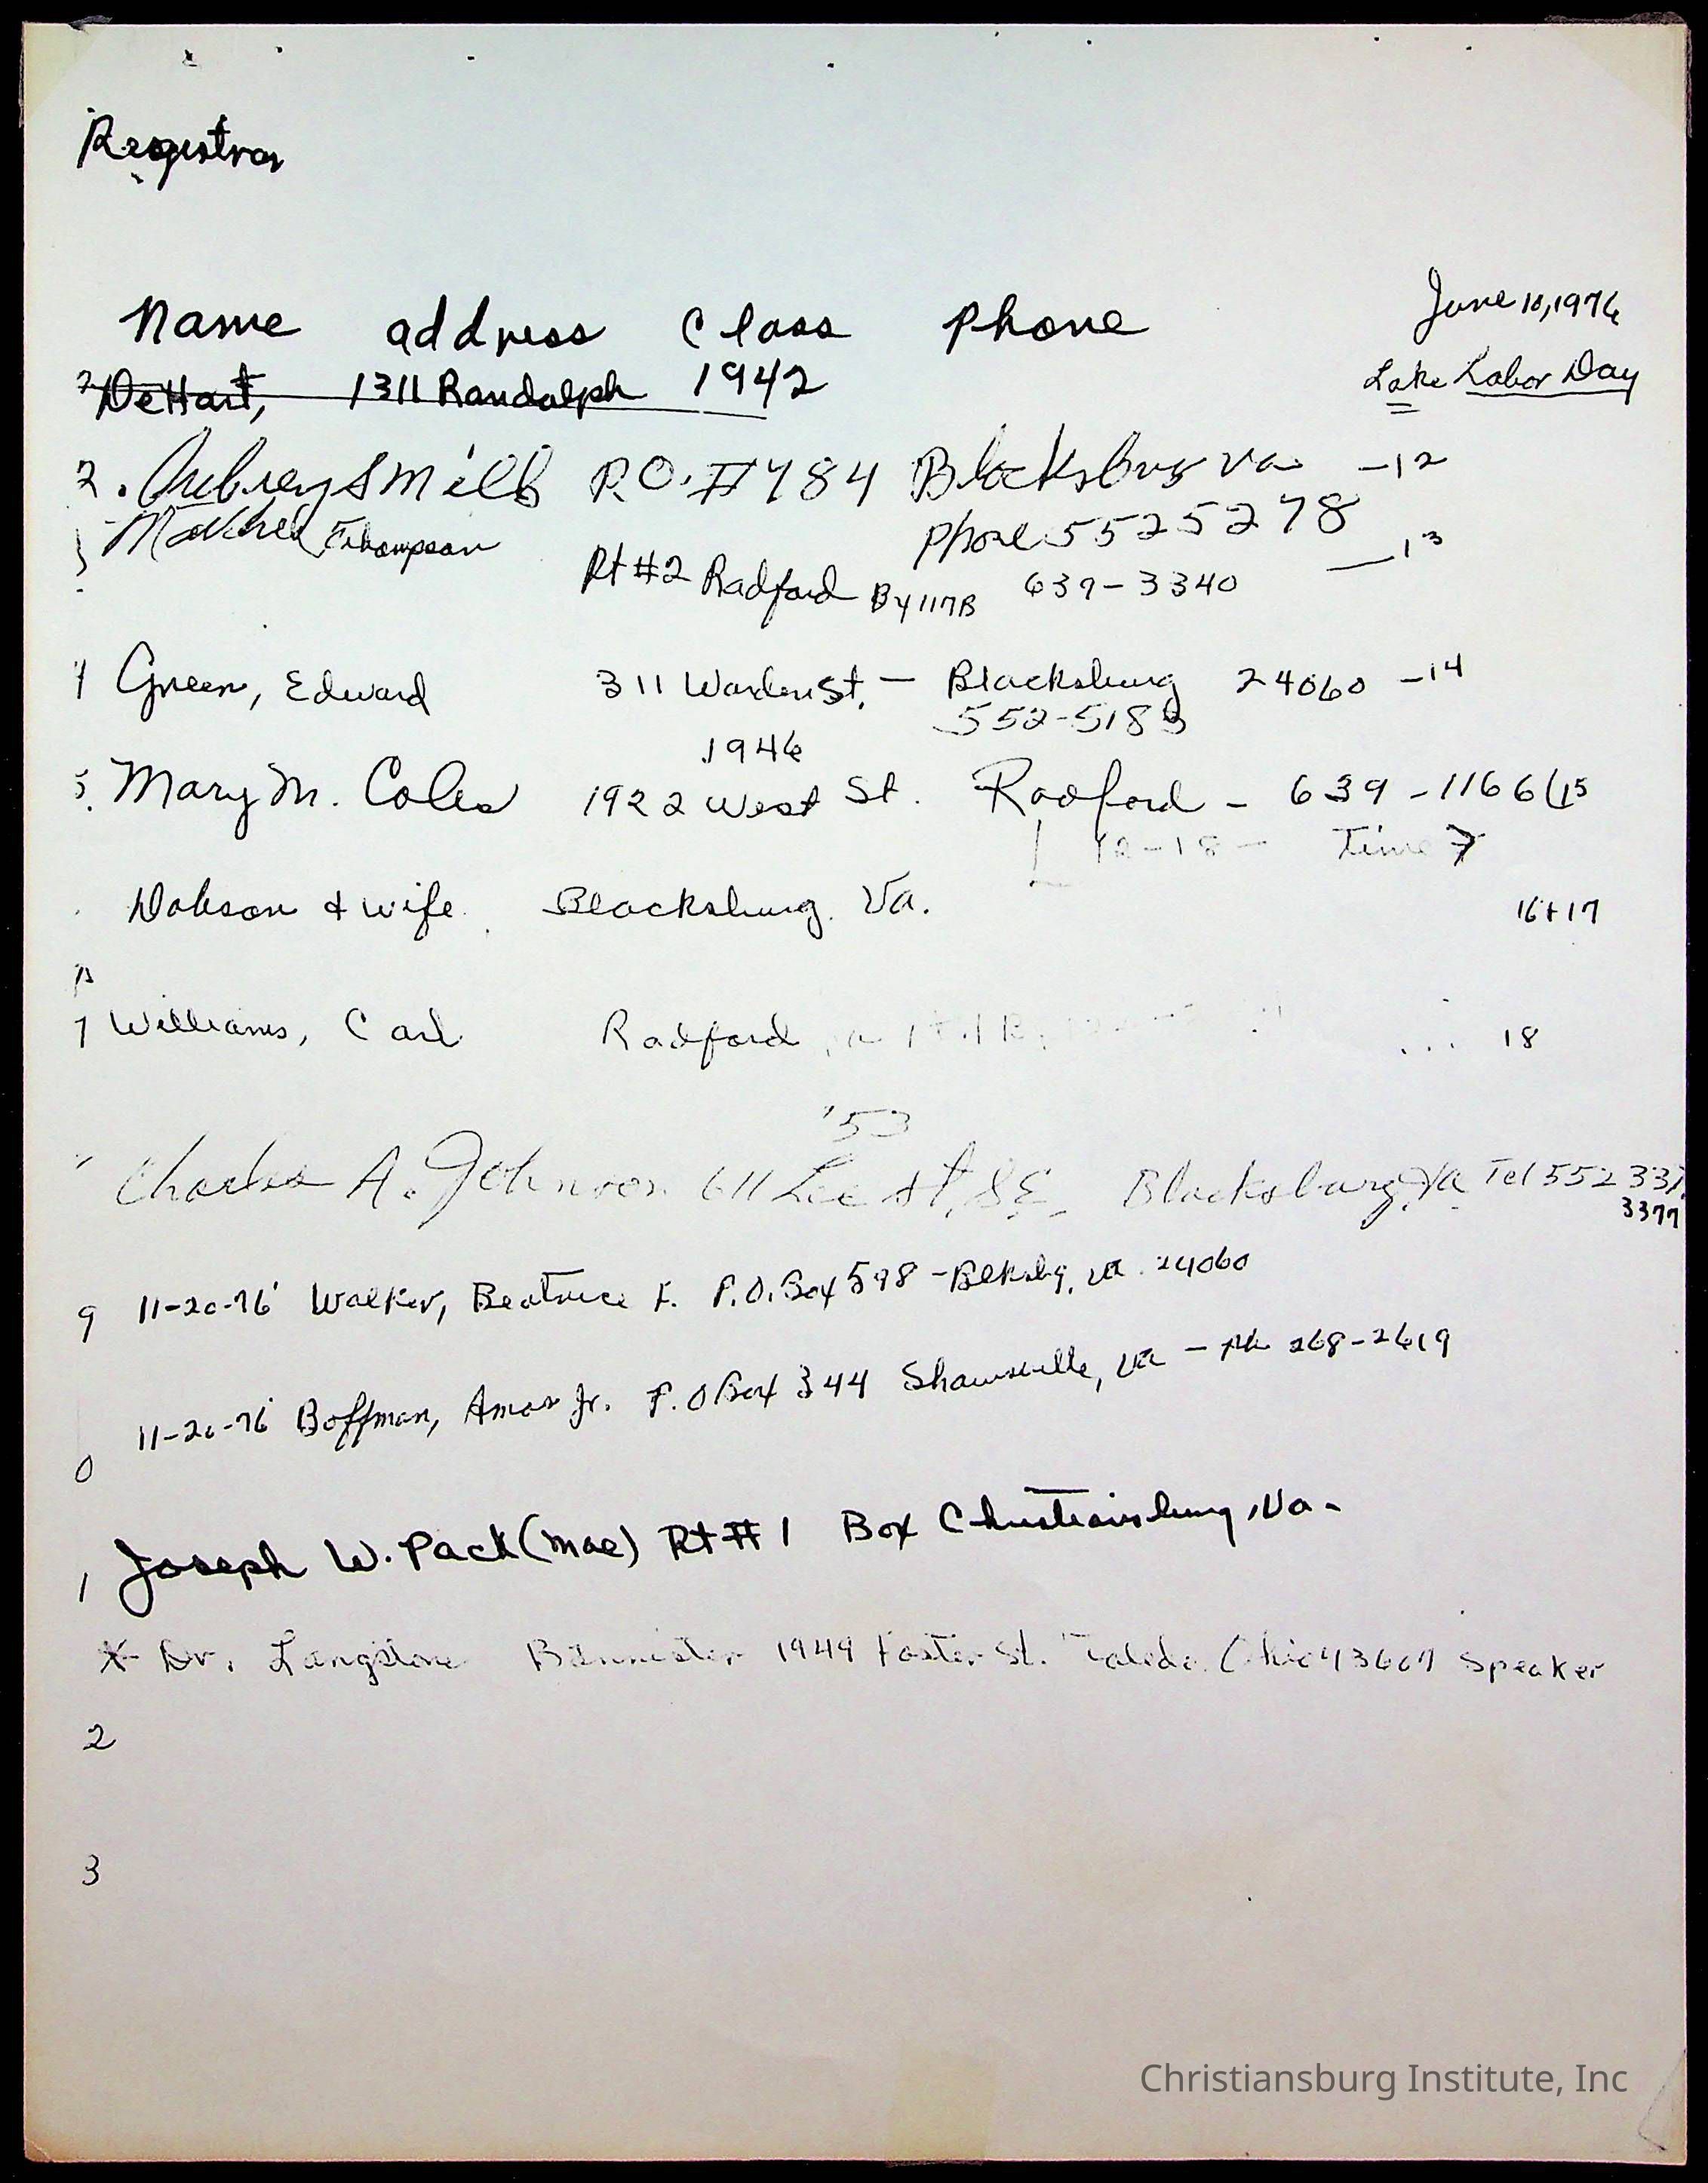 Registrar
June 10, 1976
Name address Class Phone
Lake Labor Day
DeHart, 1311 Randolph 1942
2. Aubrey S Mills P.O. #484 Blacksburg Va -12
Phone 5525278
Thompson -13
Rt #2 Radford 639-3340
4 Green, Edward 311 Warden St. - Blacksburg 24060 -14
552-5183
1946
5. Mary M. Coles 1922 West St. Radford - 639-1166 15
12-18- Time 7
Dobson & wife Blacksburg. Va. 16+17
7 Williams, Carl Radford 18
'53
Charles A. Johnson 611 Lee St, S.E. Blacksburg, Va Tel 552 337
3377
9 11-20-76 Walker, Beatrice F. P.O. Box 598 - Blksbg, Va. 24060
11-20-76 Boffman, Amos Jr. P.O Box 344 Shawsville, Va - Ph 268-2619
0
1 Joseph W. Pack (Mae) Rt #1 Box Christiansburg, Va-
X- Dr. Langstone Bannister 1949 Foster St. Toledo, Ohio 43607 Speaker
2
3
Christiansburg Institute, Inc